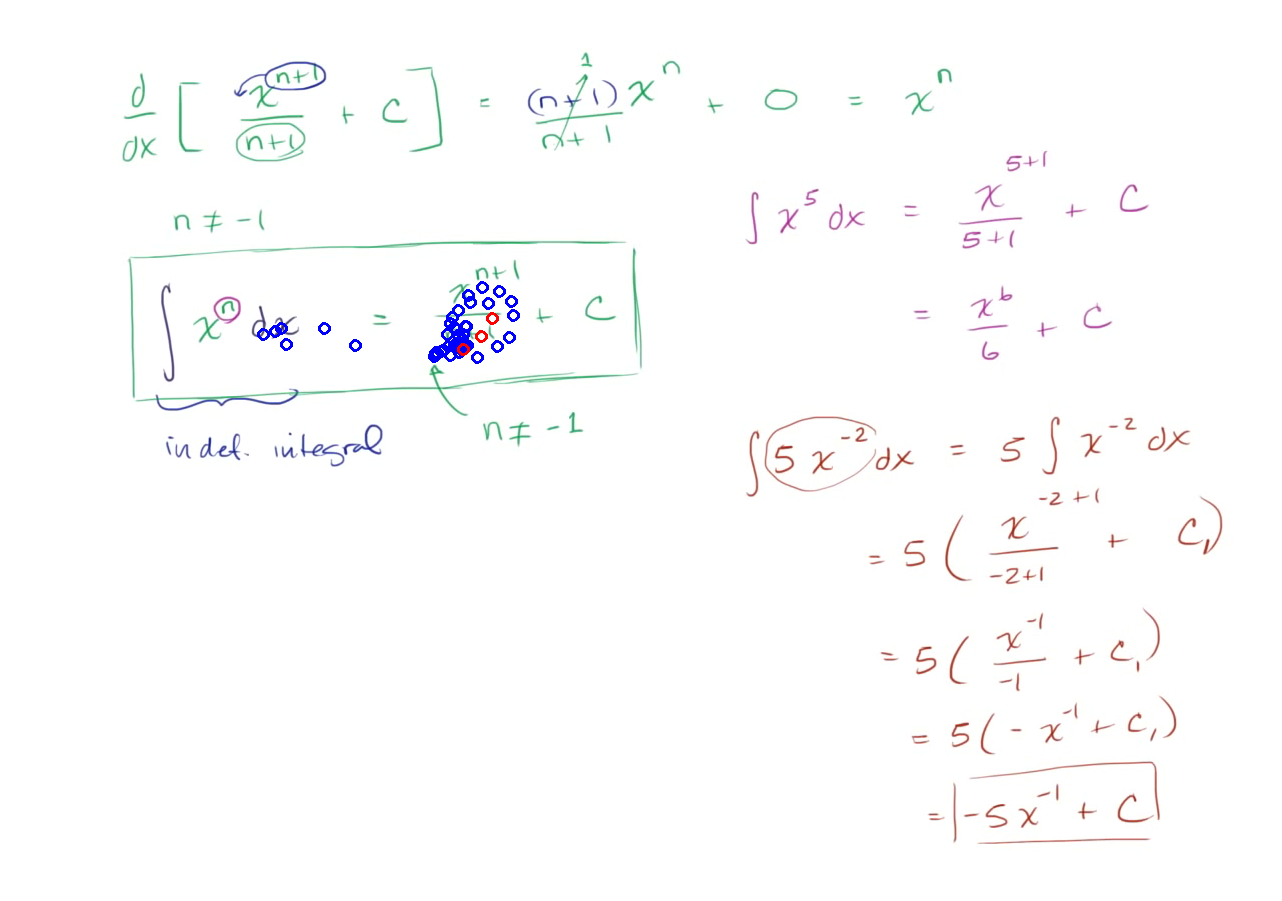 d/dx [ x^(n+1)/(n+1) + C ] = (n+1)x^n/(n+1) + 0 = x^n
1
n ≠ -1
∫ x^n dx = x^(n+1) + C
n ≠ -1
indef. integral
∫ x^5 dx = x^(5+1)/(5+1) + C
= x^6/6 + C
∫ 5 x^-2 dx = 5 ∫ x^-2 dx
= 5 ( x^(-2+1)/(-2+1) + C₁)
= 5 ( x^-1/-1 + C₁)
= 5 ( - x^-1 + C₁)
= -5x^-1 + C